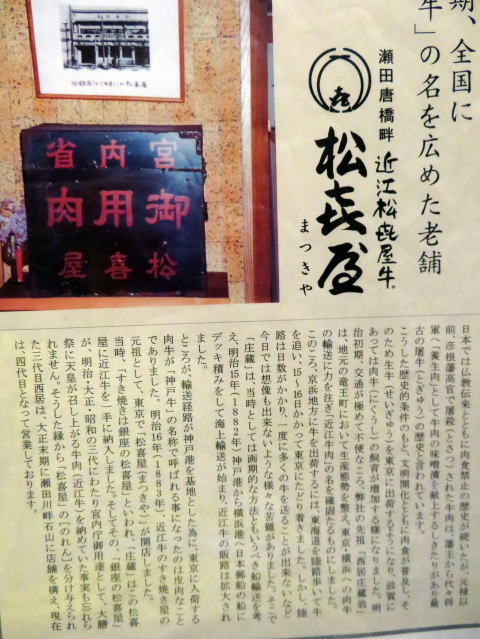 期、全国に
牛」の名を広めた老舗
瀬田唐橋畔 近江松㐂屋牛®
㐂
松㐂屋
まつきや
宮内省
御用肉
松喜屋
日本では仏教伝来とともに肉食禁止の歴史が続いたが、元禄以
前、彦根藩高宮で屠殺(とさつ)された牛肉は、藩主から代々将
軍へ「養生肉」として牛肉の味噌漬を献上するしきたりがあり最
古の屠牛(とぎゅう)の歴史と言われています。
こうした歴史的条件のもと、文明開化とともに肉食が普及し、そ
のため生牛(せいぎゅう)を東京に出荷するようになり、滋賀に
あっては肉牛(にくうし)の飼育が増加する様になりました。明
治初期、交通が極めて不便なころ、弊社の先祖「西居庄蔵翁」
は、地元の竜王町において生産態勢を整え、東京・横浜への肉牛
の輸送に力を注ぎ「近江牛肉」の名を確固たるものにしました。
このころ、京浜地方に牛を出荷するには、東海道を陸路歩いて牛
を追い、15~16日かかって東京にたどり着きました。しかし、陸
路は日数がかかり、一度に多くの牛を送ることが出来ないなど
今日では想像も出来ないような様々な苦難がありました。そこで
「庄蔵」は、当時としては画期的な方法ともいうべき船輸送を考
え、明治15年(1882年)神戸港から横浜港へ日本郵船の船に
デッキ積みをして海上輸送が始まり、近江牛の販路は拡大され
ました。
ところが、輸送経路が神戸港を基地とした為に東京に入荷する
肉牛が「神戸牛」の名称で呼ばれる事になったのは皮肉なこと
でありました。明治16年(1883年)、近江牛のすき焼き屋の
元祖として、東京で「松喜屋(まつきや)」が開店しました。
当時、「すき焼きは銀座の松喜屋」といわれ、「庄蔵」はこの松喜
屋に近江牛を一手に納入しました。そしてその、「銀座の松喜屋」
が、明治・大正・昭和の三代にわたり宮内庁御用達として、大膳
祭に天皇が召し上がる牛肉(近江牛)を納めていた事実も忘れら
れません。そうした縁から「松喜屋」の「のれん」を分け与えられ
た三代目西居は、大正末期に瀬田川畔石山に店舗を構え、現在
は、四代目となって営業しております。